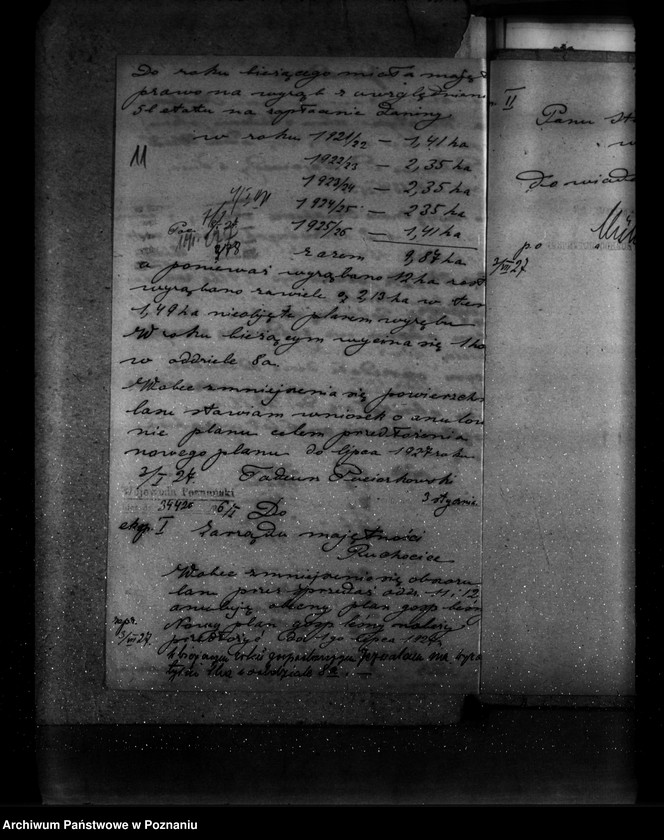 Do roku bieżącego miała mają
prawo na wyrąb z uwzględnieni
51 etatu na zapłacenie daniny
w roku 1921/22 — 1,41 ha
11
1922/23 — 2,35 ha
1923/24 — 2,35 ha
1924/25 — 235 ha
1925/26 — 1,41 ha
razem 9,87 ha
a ponieważ wyrąbano 12 ha
wyrąbano zawiele 2,13 ha w tem
1,49 ha nieobjęte planem wyrębu
W roku bieżącym wycina się 1 ha
w oddziele 8a.
Wobec zmniejszenia się powierzch
lasu stawiam wniosek o anulow
nie planu celem przedłożenia
nowego planu do lipca 1927 roku
3/I 27. Tadeusz Paciorkowski
Wojewoda Poznański
3 stycznia
34426 6/I
Do
eksp. I Zarządu majętności
Ruchocice
Wobec zmniejszenia się obszaru
lasu przez sprzedaż oddz. 11 i 12
plan gosp
Nowy plan gosp należy
przedłożyć do 1go lipca 1927.
w oddziale 8a. —
II
Panu
w
Do wiado
po
3/III 27
Archiwum Państwowe w Poznaniu